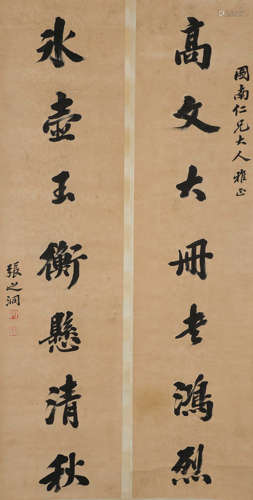 南仁兄大人雅正
高文大冊書鴻烈
冰壺玉衡懸清秋
張之洞